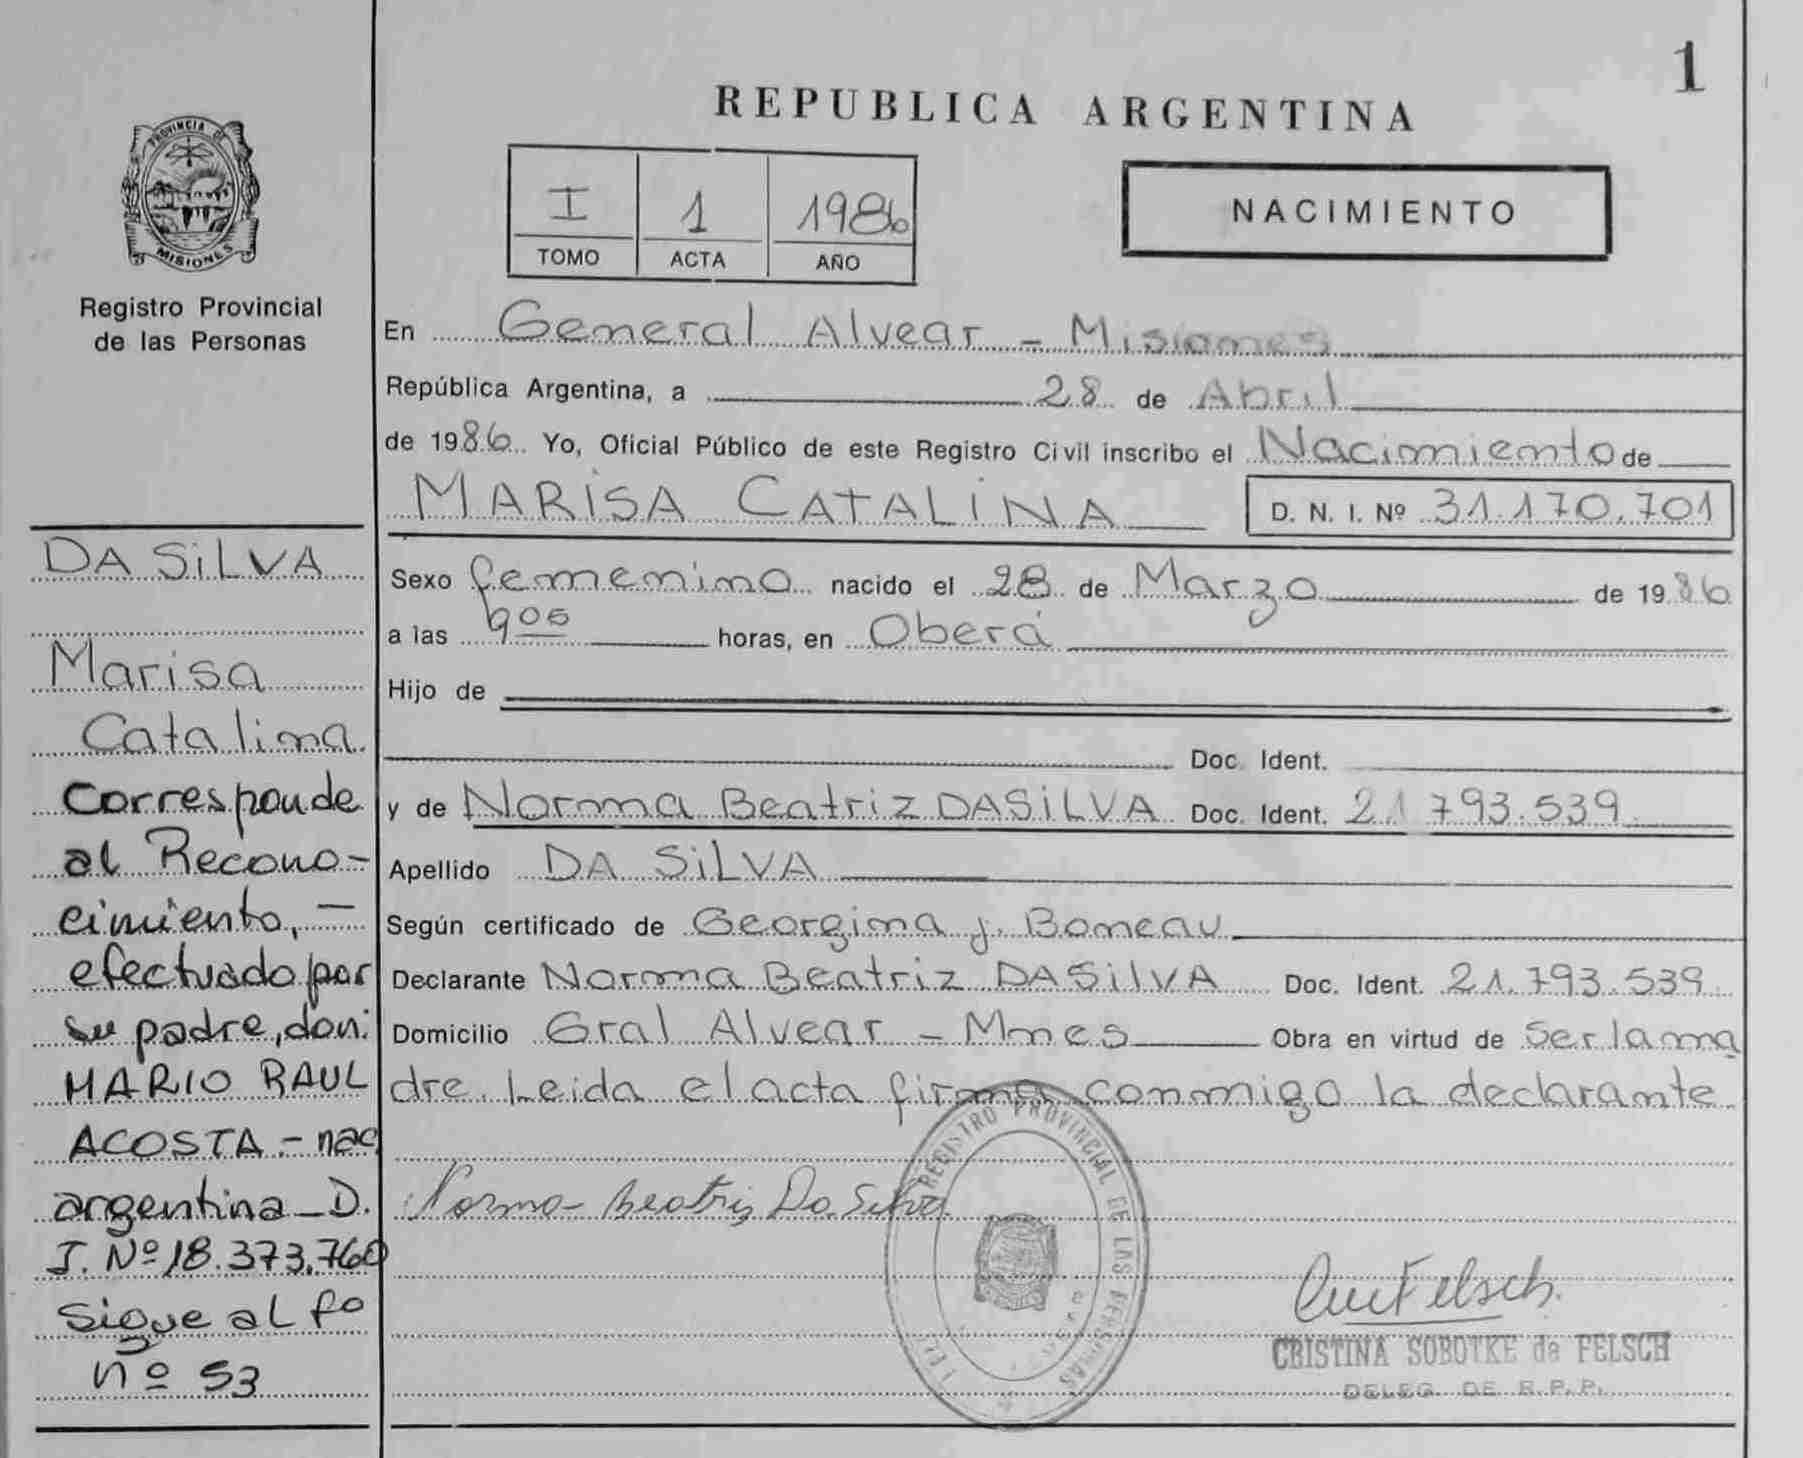 1
REPUBLICA ARGENTINA
PROVINCIA DE
MISIONES
Registro Provincial
de las Personas
I 1 1986
TOMO ACTA AÑO
NACIMIENTO
En General Alvear - Misiones
República Argentina, a 28 de Abril
de 1986 Yo, Oficial Público de este Registro Civil inscribo el Nacimiento de
MARISA CATALINA D. N. I. Nº 31.170.701
Sexo femenino nacido el 28 de Marzo de 1986
a las 9 05 horas, en Oberá
Hijo de
Doc. Ident.
y de Norma Beatriz DASILVA Doc. Ident. 21 793.539
Apellido DA SILVA
Según certificado de Georgina J. Boneau
Declarante Norma Beatriz DASILVA Doc. Ident. 21.793.539
Domicilio Gral Alvear - Mnes Obra en virtud de ser la ma
dre. Leida el acta firma conmigo la declarante
Norma Beatriz Da Silva
REGISTRO PROVINCIAL DE LAS PERSONAS
CRISTINA SOBOTKE de FELSCH
DELEG. DE R. P. P.
DA SILVA
Marisa
Catalina
Corresponde
al Recono-
cimiento, -
efectuado por
su padre, don:
MARIO RAUL
ACOSTA - nac
argentina - D.
I. Nº 18.373.760
Sigue al fº
nº 53